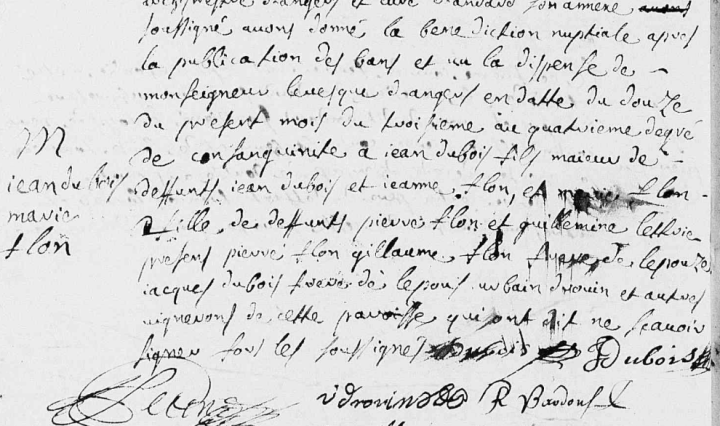 soussigné avons donné la benediction nuptiale apres
la publication des bans et vu la dispense de
monseigneur levesque d'angers en datte du douze
du present mois du troisieme au quatrieme degré
de consanquinite a jean dubois fils maieur de
deffunts jean dubois et jeanne flon, et marie flon
fille de deffunts pierre flon et guillemine
presens pierre flon gillaume flon frere de lepouze
jacques dubois frere de lepous urbain drouin et autres
vignerons de cette paroisse qui ont dit ne scavoir
signer fors les soussignes Dubois J Dubois
M
jean dubois
marie
flon
v drouin R